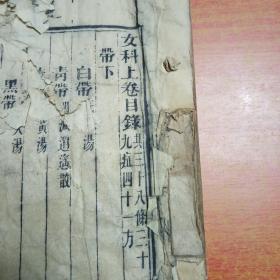 女科上卷目錄 共三十八條三十九症四十一方
帶下
白帶 湯
青帶 減逍遙散
黃湯
黑帶 火湯